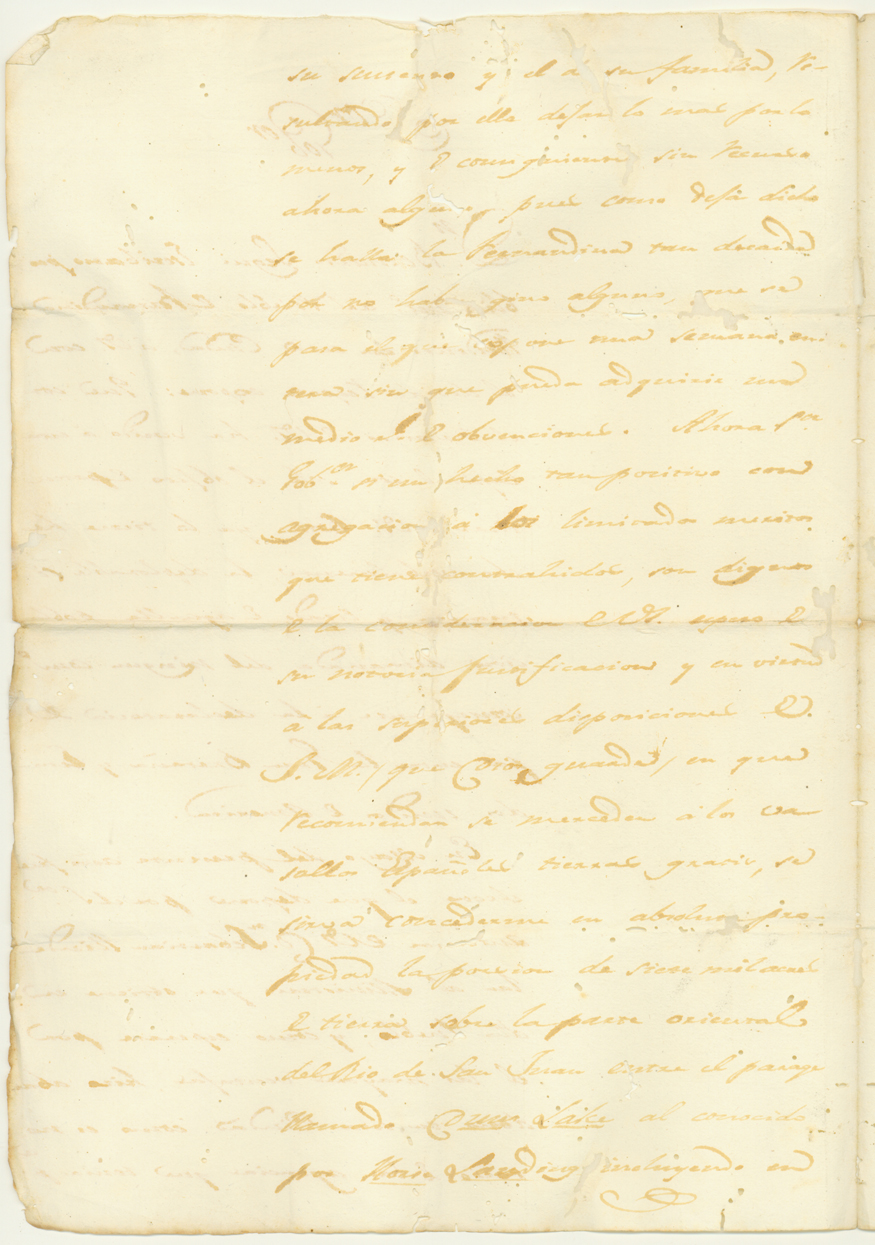 su sustento y el d su familia, re-
sultando por ello dejar lo mas por lo
menos, y d consiguiente sin recurso
ahora alguno, pues como dejo dicho
se halla la Fernandina tan decaida
por no haber giro alguno, que se
para el que expone una semana, y
otra sin que pueda adquirir un
medio rl. d obvenciones. Ahora Sor.
Gobor. si un hecho tan positivo con
agregacion á los limitados meritos
que tiene contrahidos, son dignos
d la consideracion d V.S. espero d
su notoria justificacion y en virtud
á las superiores disposiciones d
S. M. (que Dios guarde) en que
recomiendan se mercedен á los va-
sallos Españoles tierras gratis, se
sirva concederme en absoluta pro-
piedad la porcion de siete mil acres
d tierra sobre la parte oriental
del Rio de San Juan entre el parage
llamado Dunn Lake al conocido
por Horse Landing incluyendo en